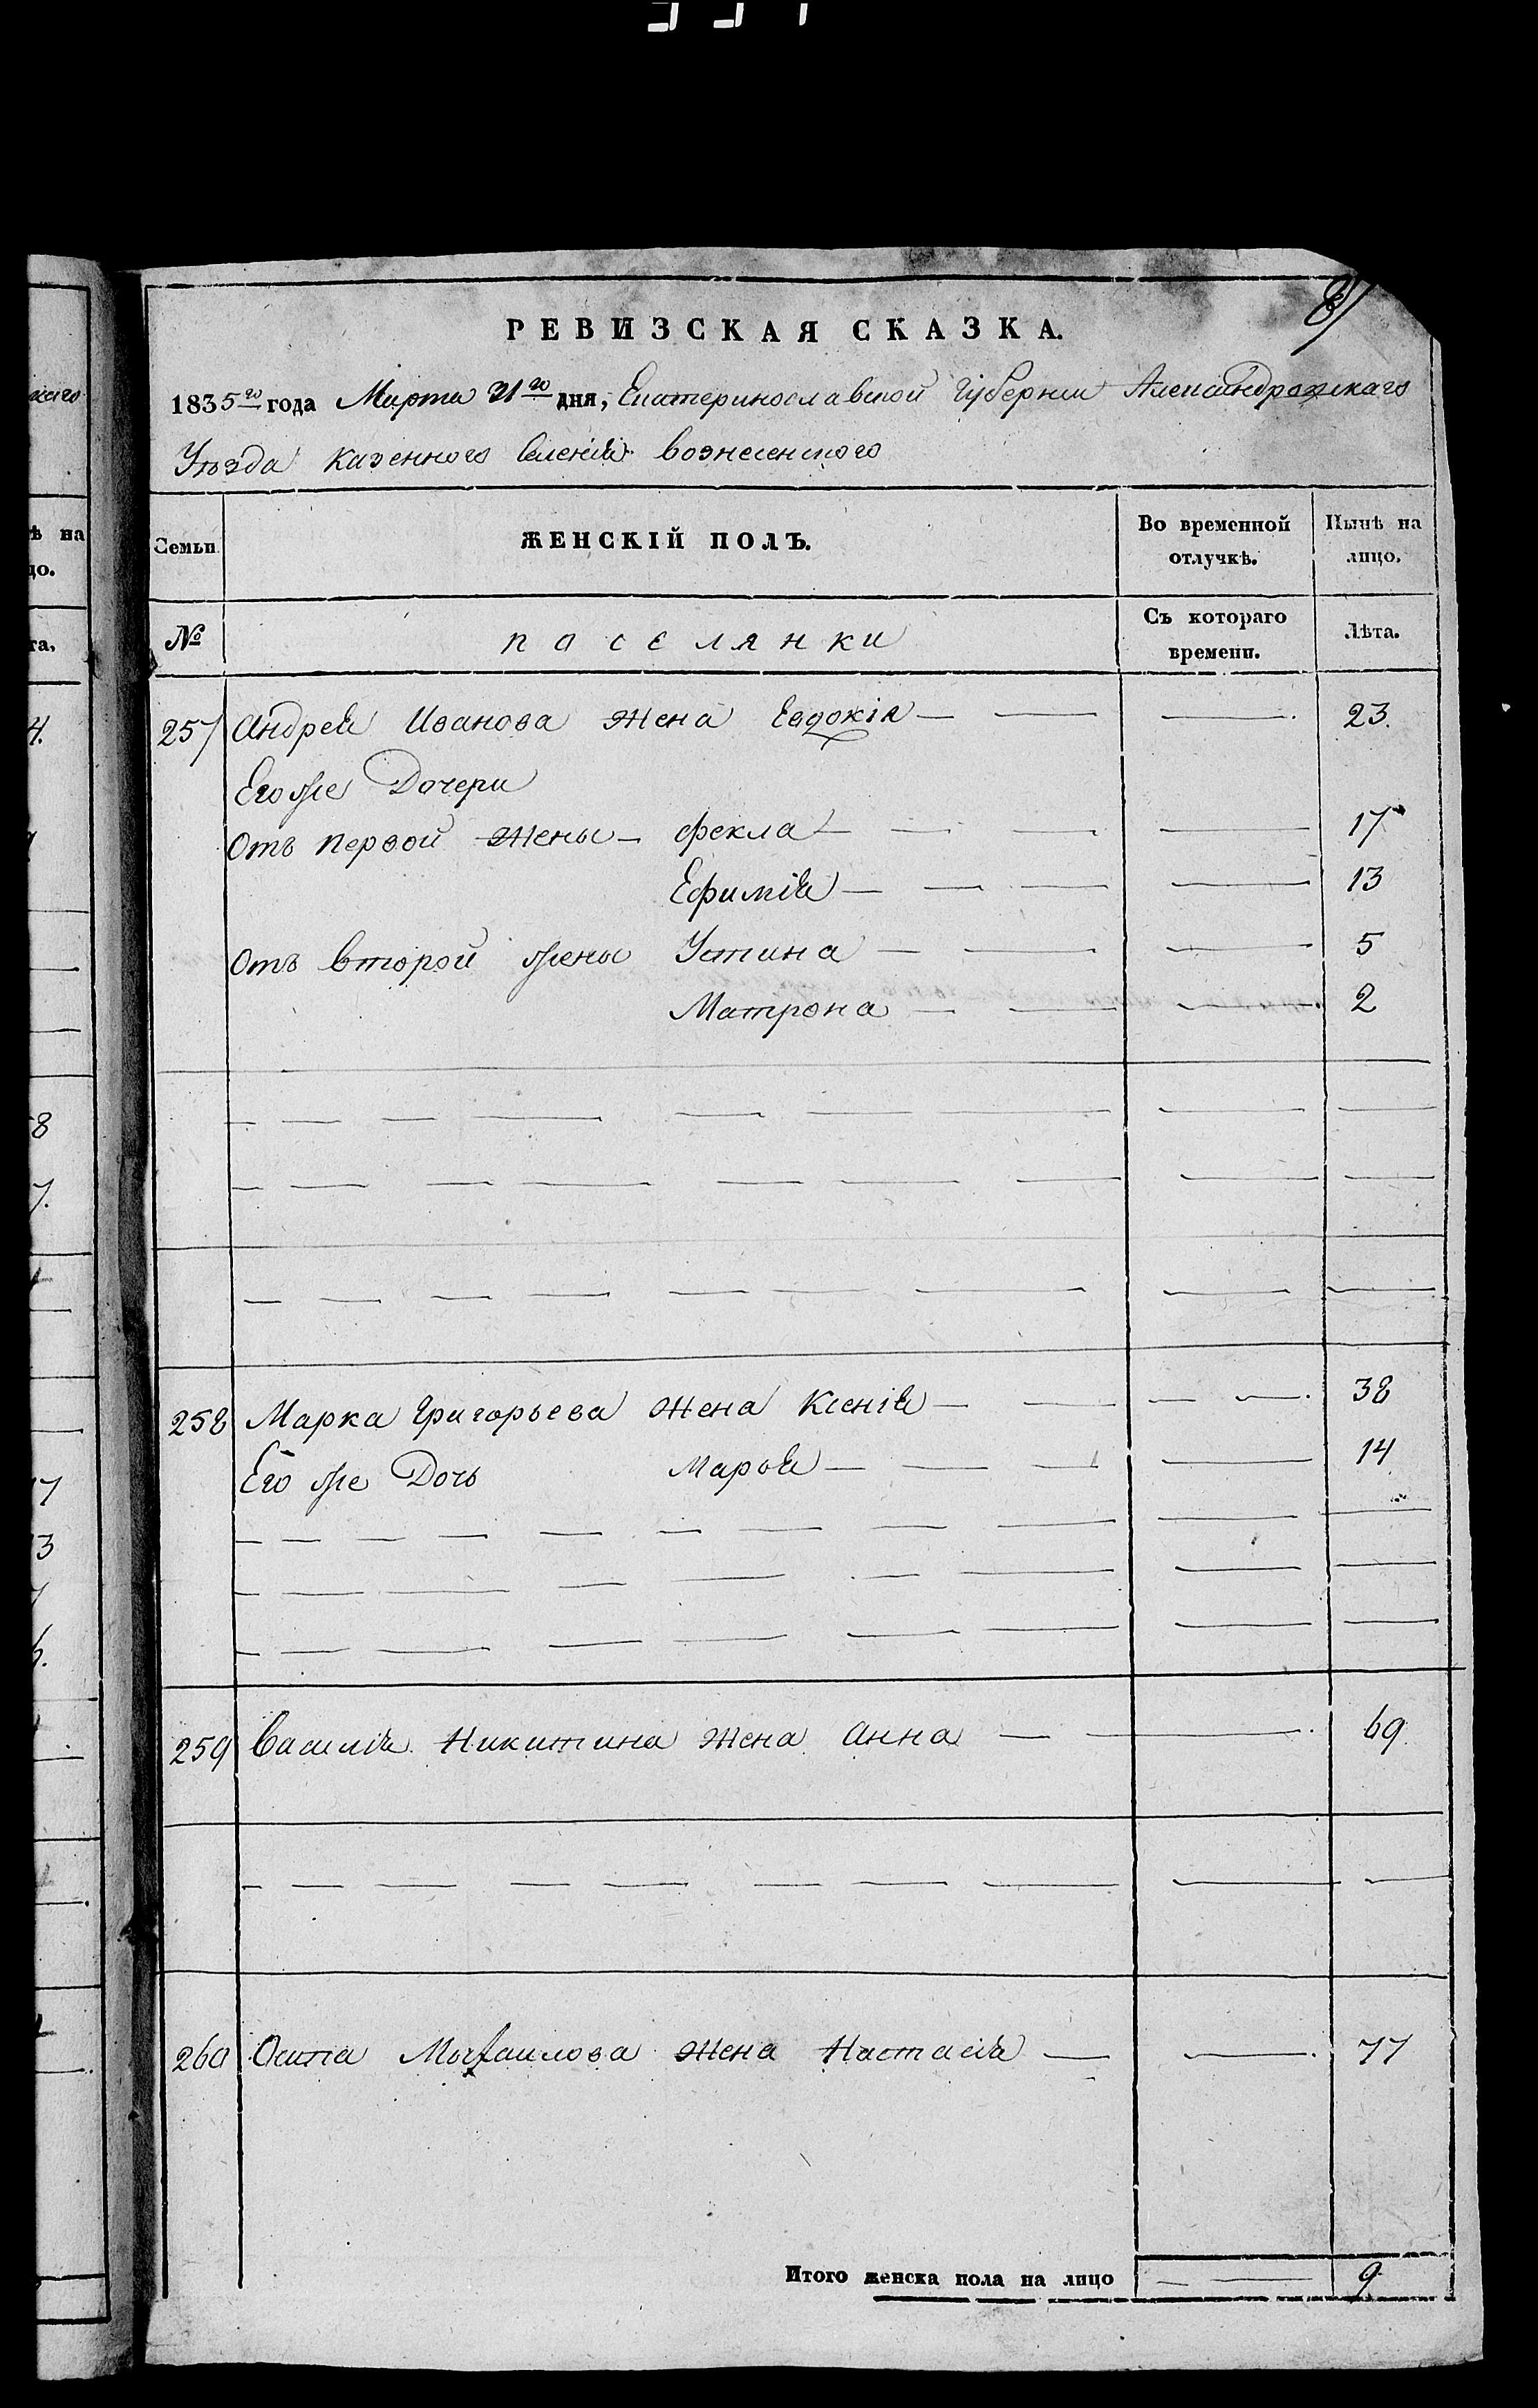 РЕВИЗСКАЯ СКАЗКА.
1835го года Марта 21го дня, Екатеринославской Губернии Александровскаго
Уезда казенного Селения вознесенского
Семьи
ЖЕНСКІЙ ПОЛЪ.
Во временной отлучкѣ.
Нынѣ на лицо.
№
поселянки
Съ котораго времени.
Лѣта.
257 Андрея Иванова жена Евдокія — — — 23.
Его же Дочери
Отъ первой жены — Фекла — — — — 17
Ефимія — — — — 13
Отъ второй жены Устина — — — 5
Матрона — — — 2
258 Марка Григорьева жена Ксенія — — — — 38
Его же Дочь Марѳа — — — — 14
259 Василия Никитина жена Анна — — 69
260 Осипа Михаилова жена Настасія — — 77
Итого женска пола на лицо — — 9